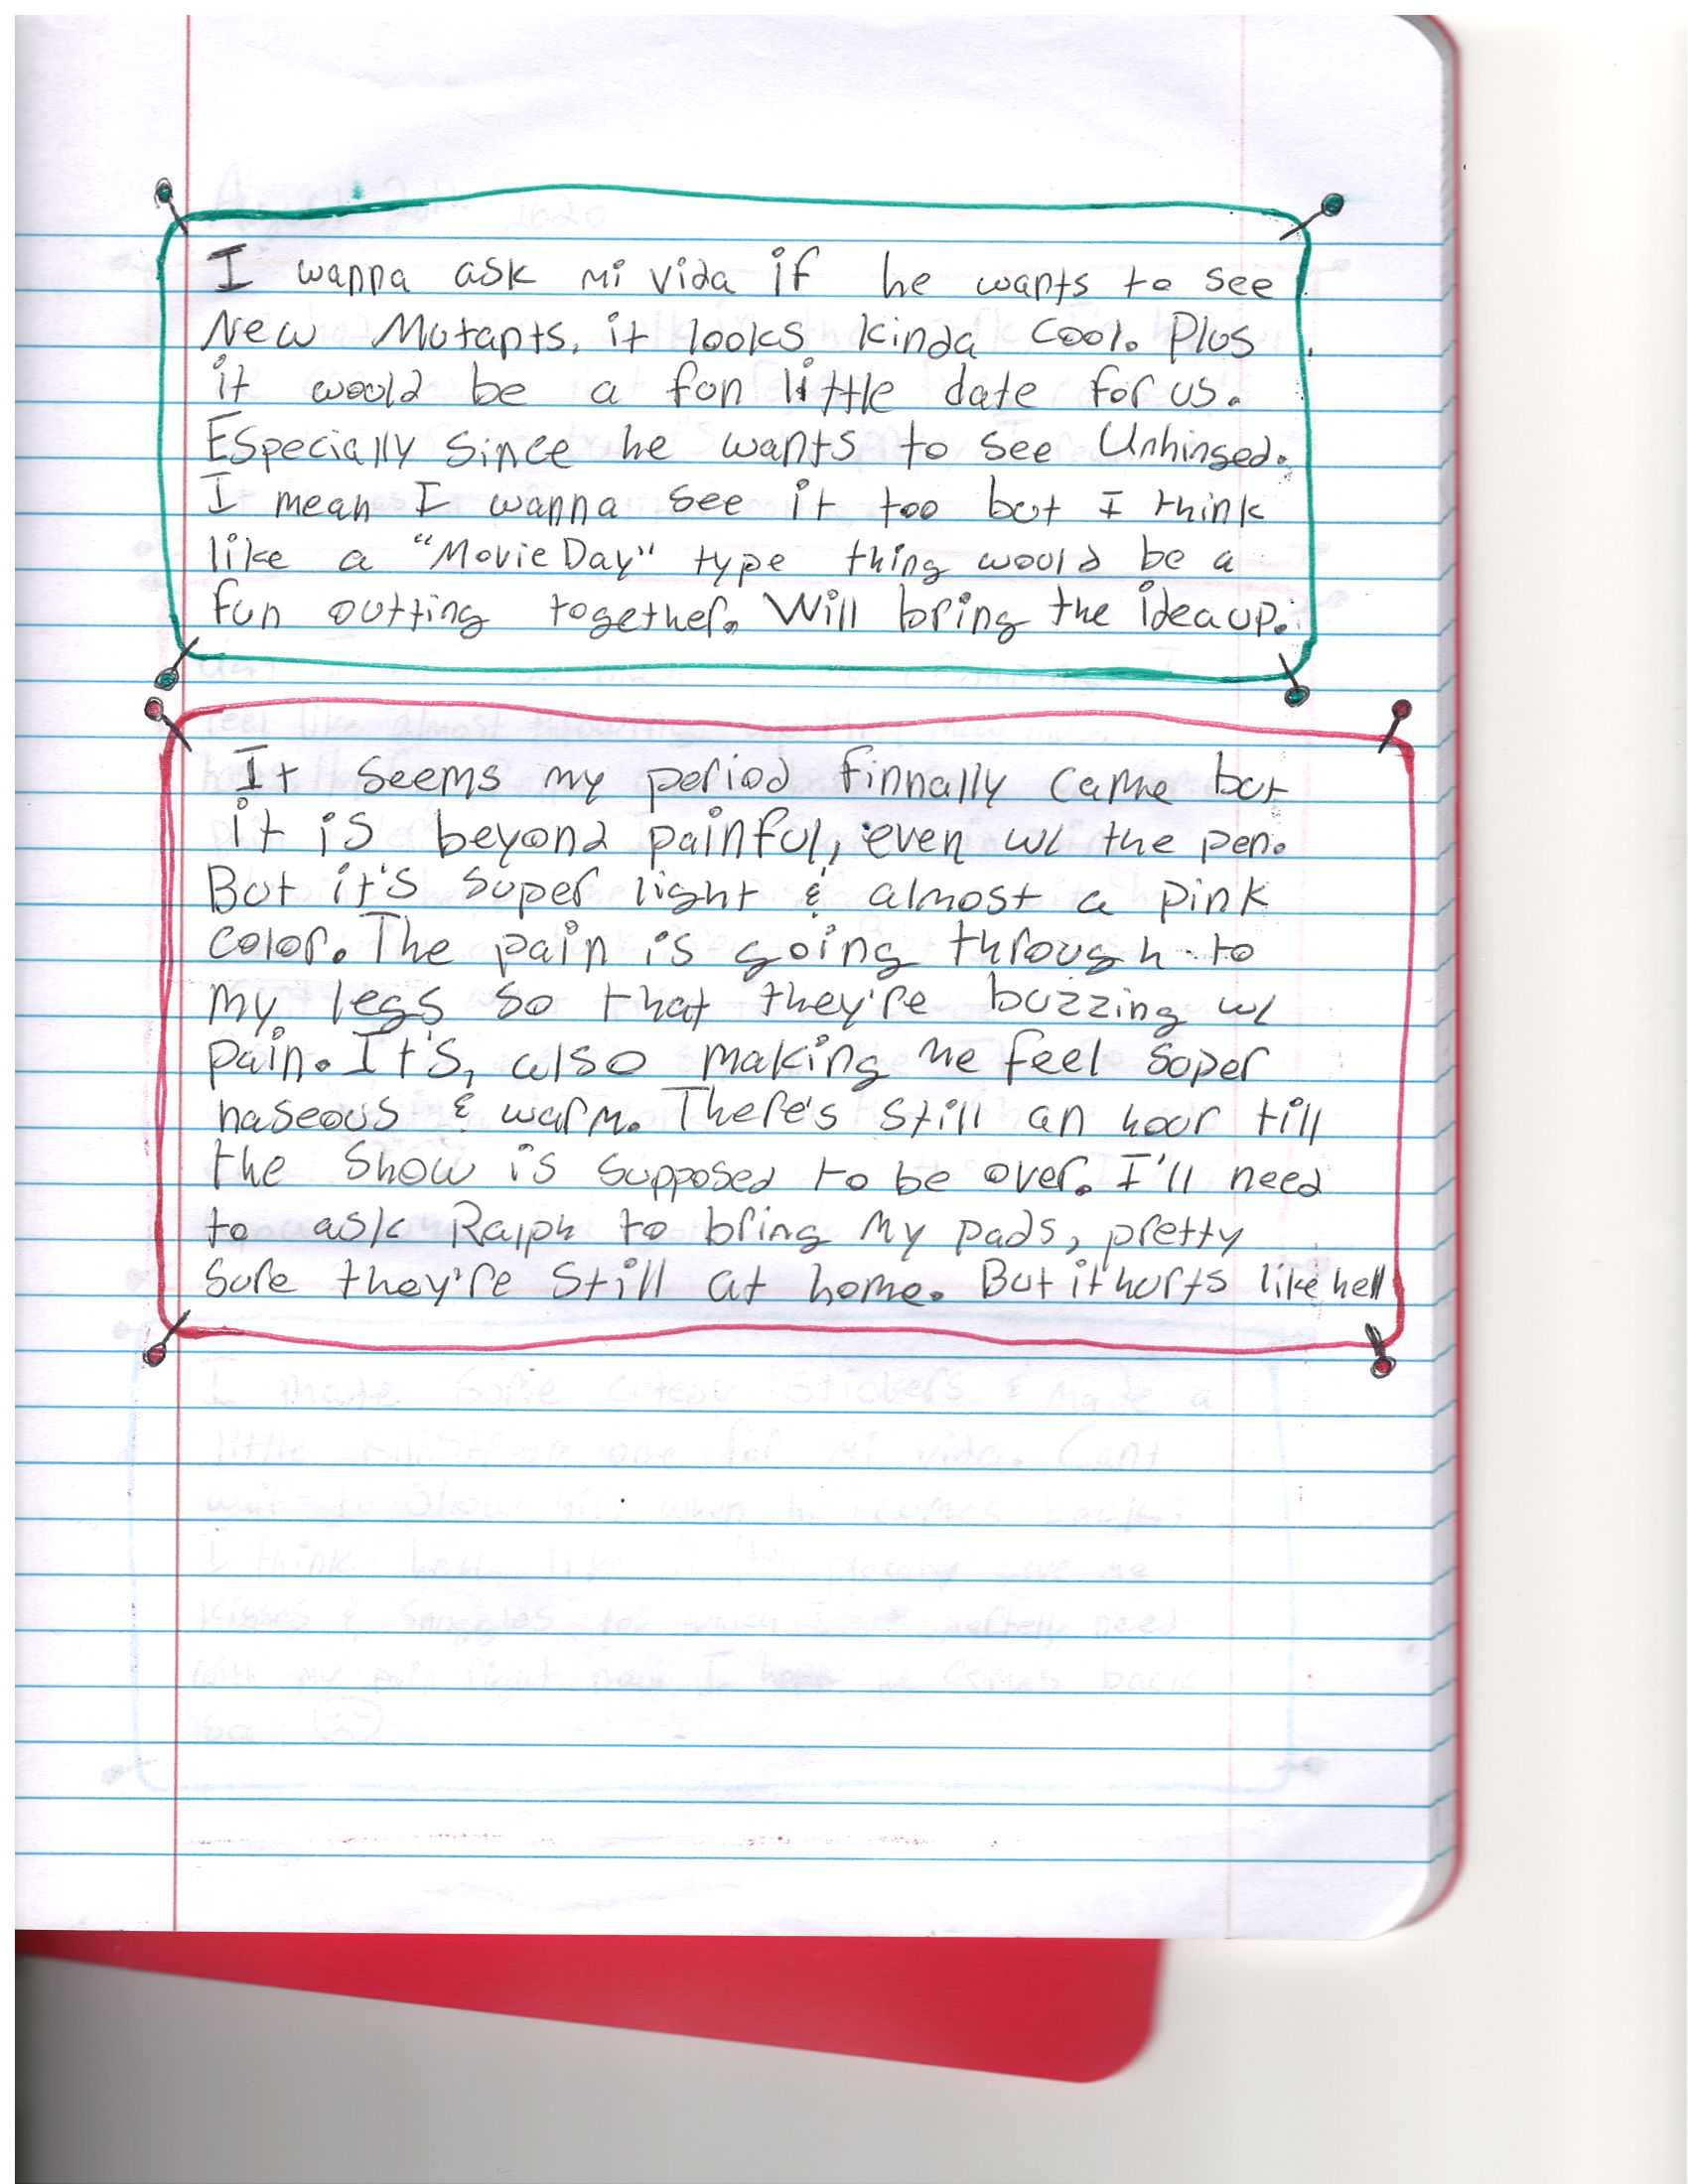 I wanna ask mi vida if he wants to see
New Mutants, it looks kinda cool. Plus
it would be a fun little date for us.
Especially since he wants to see Unhinged.
I mean I wanna see it too but I think
like a "Movie Day" type thing would be a
fun outting together. Will bring the idea up.
It seems my period finnally came but
it is beyond painful, even w/ the pen.
But it's super light & almost a pink
color. The pain is going through to
my legs so that they're buzzing w/
pain. It's, also making me feel super
naseous & warm. There's still an hour till
the show is supposed to be over. I'll need
to ask Ralph to bring my pads, pretty
sure they're still at home. But it hurts like hell